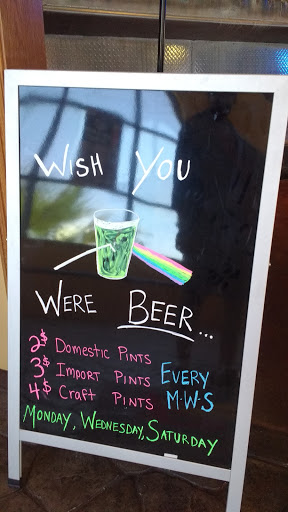 Wish You
Were Beer...
2$ Domestic Pints
3$ Import Pints Every
4$ Craft Pints M.W.S
Monday, Wednesday, Saturday